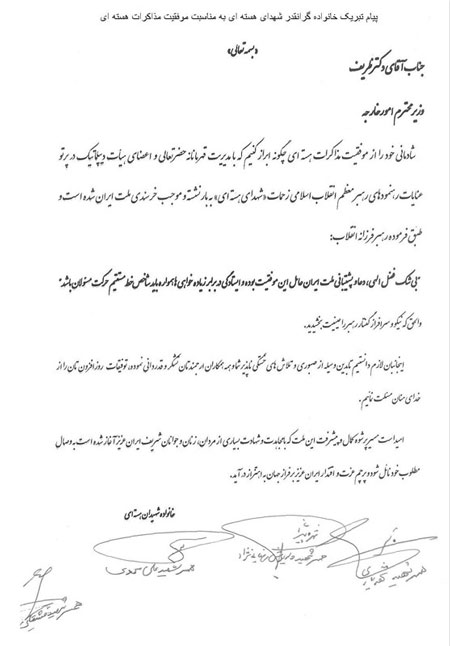 پیام تبریک خانواده گرانقدر شهدای هسته ای به مناسبت موفقیت مذاکرات هسته ای
«بسمه تعالی»
جناب آقای دکتر ظریف
وزیر محترم امور خارجه
شادمانی خود را از موفقیت مذاکرات هسته ای چگونه ابراز کنیم که با مدیریت قهرمانانه حضرتعالی و اعضای هیأت دیپلماتیک در پرتو
عنایات و رهنمودهای رهبر معظم انقلاب اسلامی زحمات «شهدای هسته ای» به بار نشسته و موجب خرسندی ملت ایران شده است و
طبق فرموده رهبر فرزانه انقلاب:
"بی شک فضل الهی، دعا و پشتیبانی ملت ایران عامل این موفقیت بوده و ایستادگی در برابر زیاده خواهی ها همواره باید شاخص خط مستقیم حرکت مسئولان باشد"
والحق که نیکو و سرافراز گفتار رهبر را عینیت بخشیدید.
اینجانبان لازم دانستیم تا بدین وسیله از صبوری و تلاش های خستگی ناپذیر شما و همه همکاران ارجمندتان تشکر و قدردانی نموده، توفیقات روزافزون تان را از
خدای منان مسئلت نمائیم.
امید است مسیر پرشوه کمال و پیشرفت این ملت که با مجاهدت و شهادت بسیاری از مردان، زنان و جوانان شریف ایران عزیز آغاز شده است به وصال
مطلوب خود نائل شود و پرچم عزت و اقتدار ایران عزیز بر فراز جهان به اهتزاز درآید.
خانواده شهیدان هسته ای
همسر شهید
همسر شهید داریوش رضایی نژاد
همسر شهید علی محمدی
همسر شهید